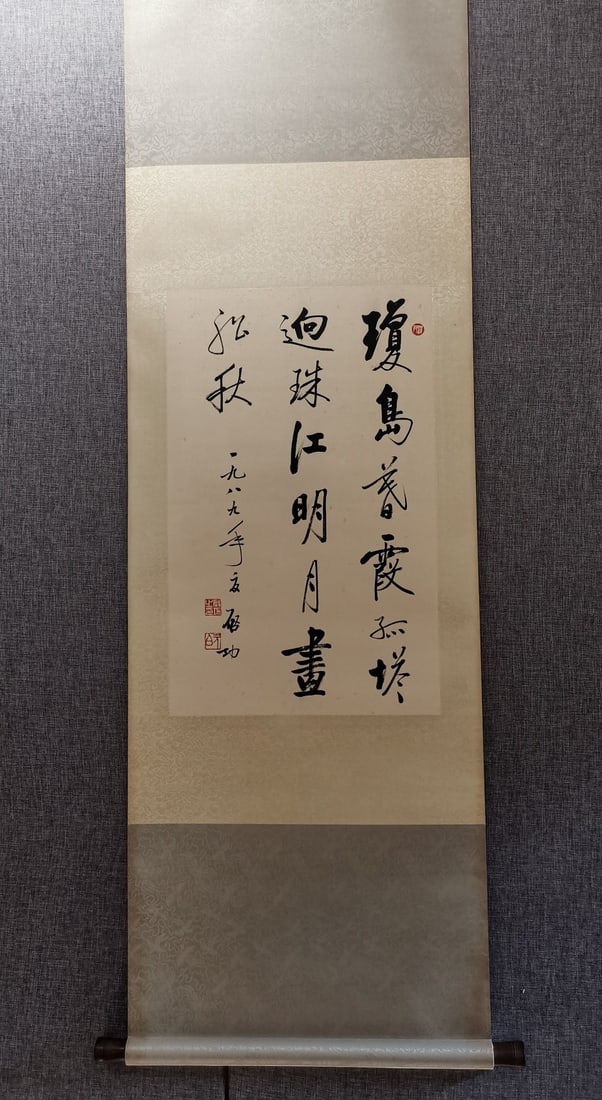 瓊島暮霞孤塔
迥珠江明月畫
船秋
一九八九年夏 启功